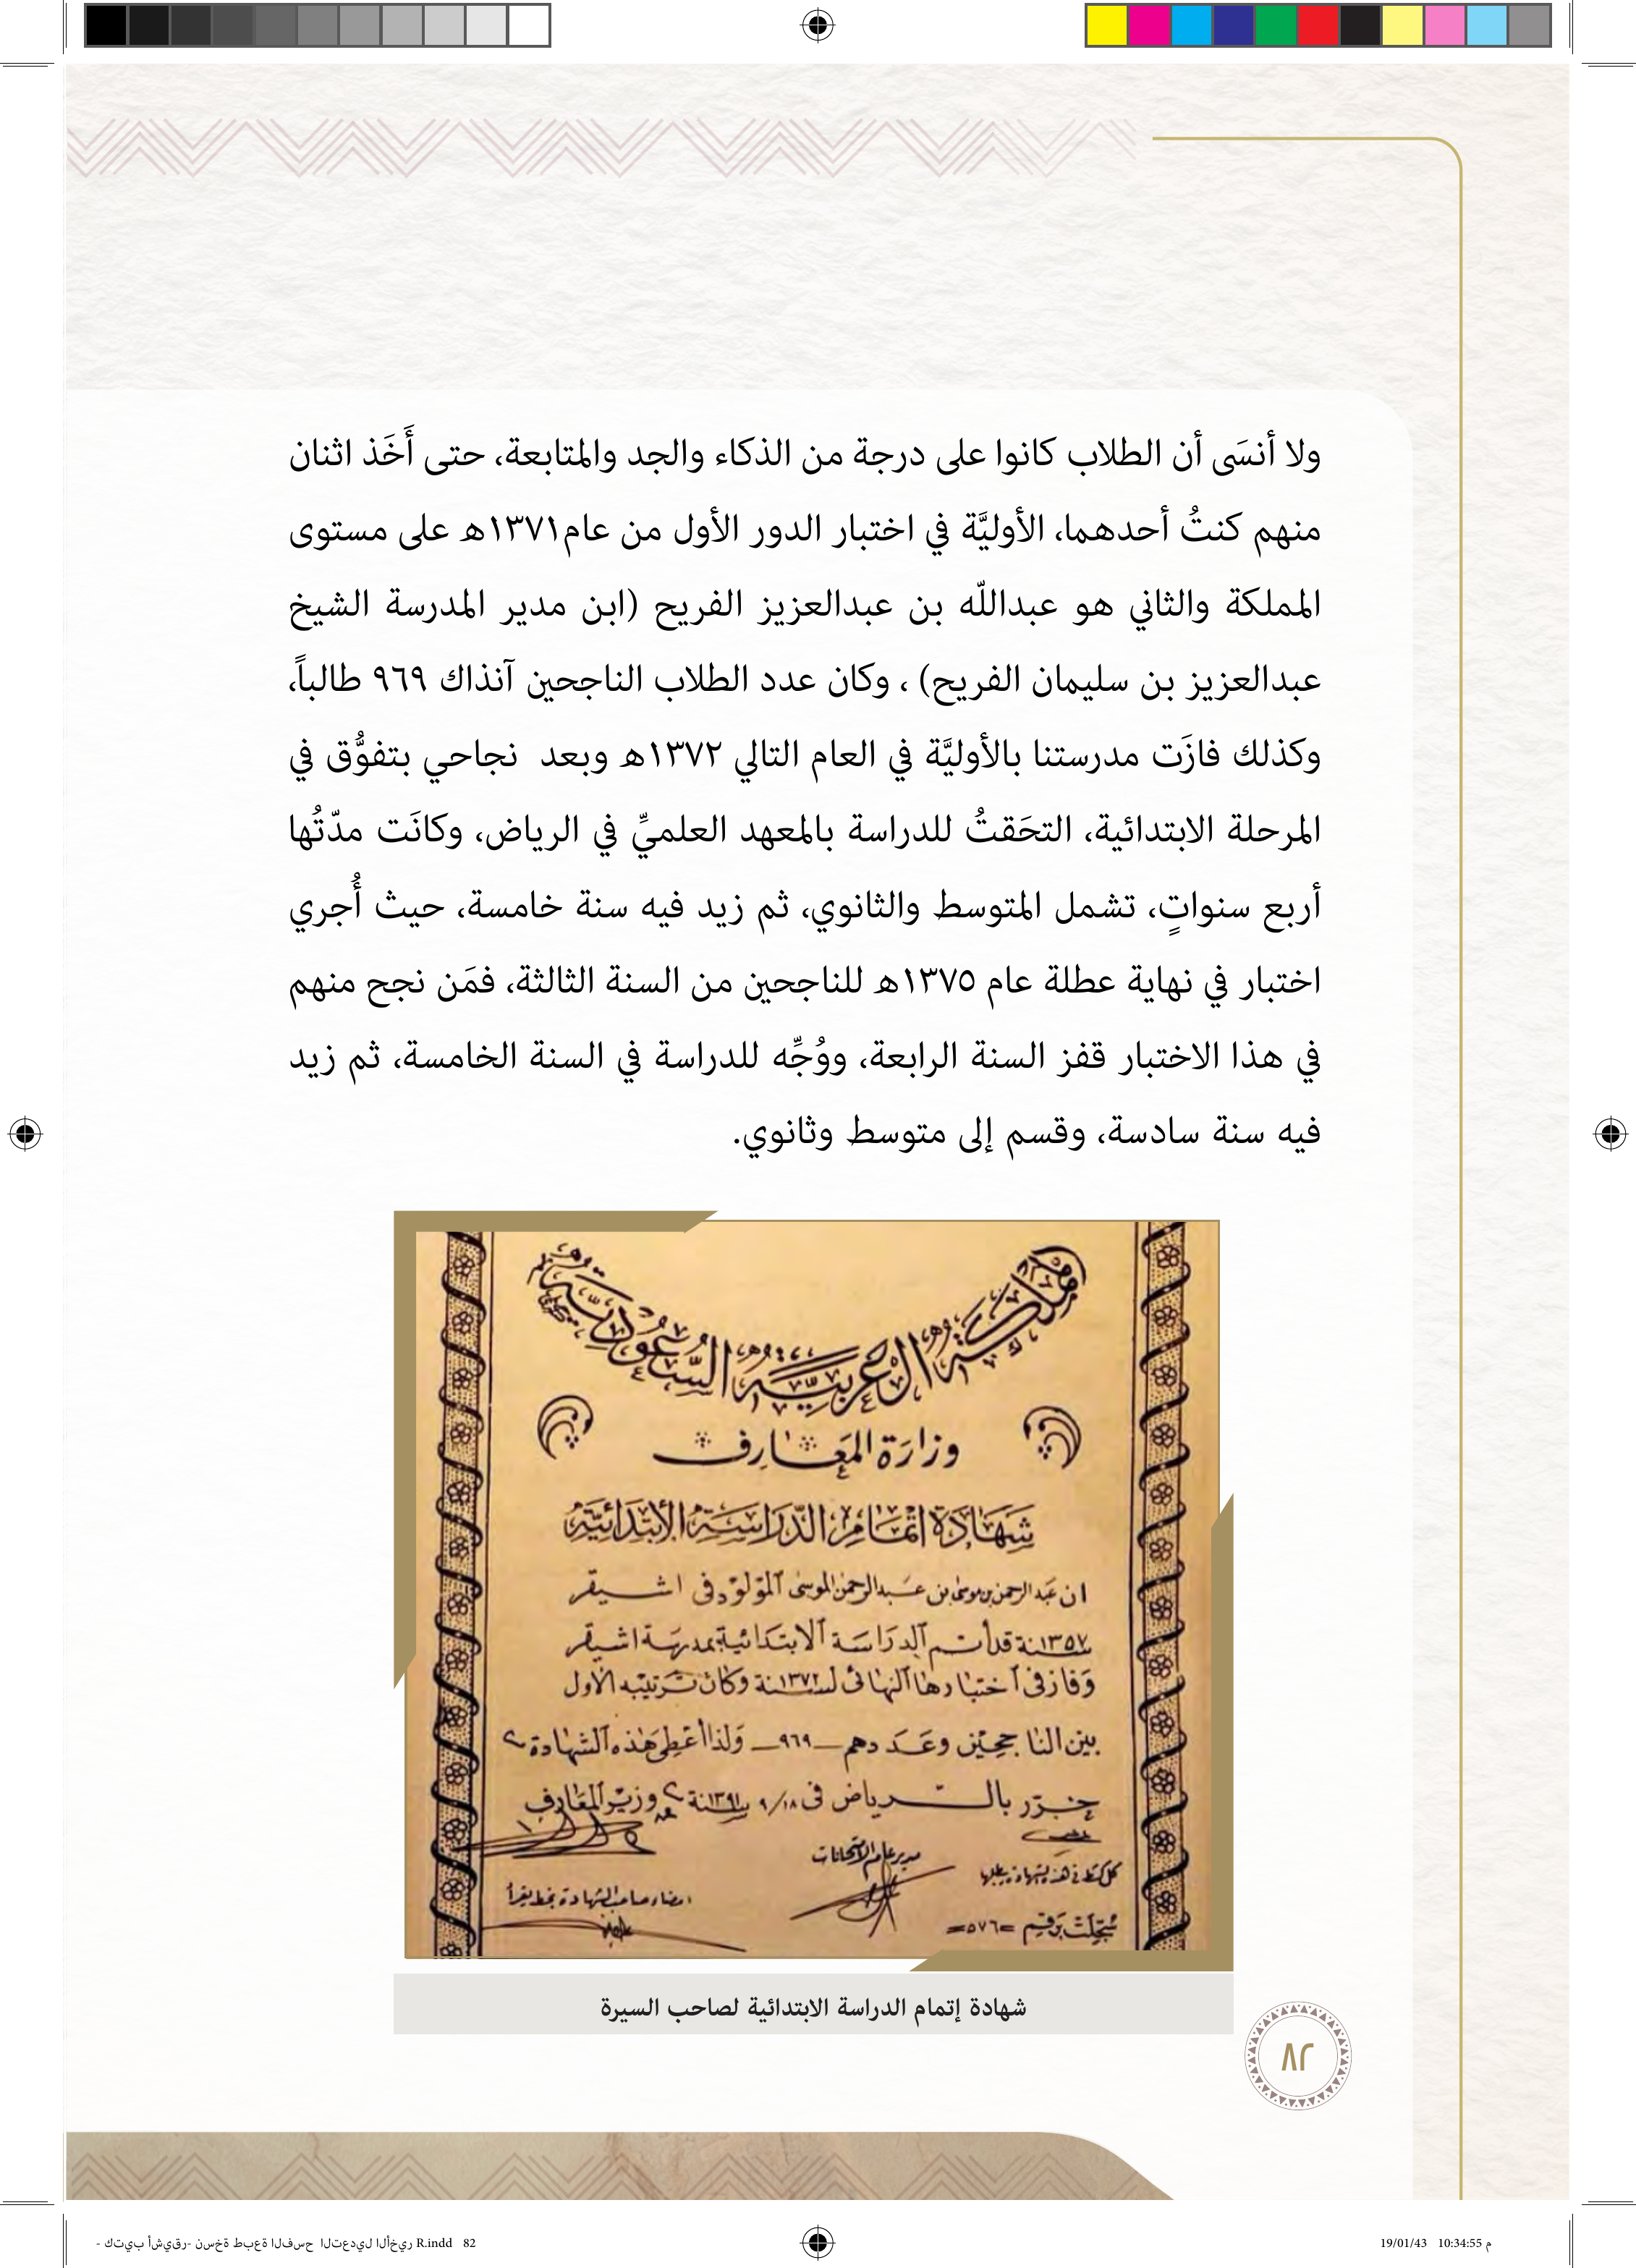 ولا أنسَى أن الطلاب كانوا على درجة من الذكاء والجد والمتابعة، حتى أَخَذ اثنان
منهم كنتُ أحدهما، الأوليَّة في اختبار الدور الأول من عام١٣٧١هـ على مستوى
المملكة والثاني هو عبداللّه بن عبدالعزيز الفريح (ابن مدير المدرسة الشيخ
عبدالعزيز بن سليمان الفريح) ، وكان عدد الطلاب الناجحين آنذاك ٩٦٩ طالباً،
وكذلك فازَت مدرستنا بالأوليَّة في العام التالي ١٣٧٢هـ وبعد نجاحي بتفوُّق في
المرحلة الابتدائية، التحَقتُ للدراسة بالمعهد العلميِّ في الرياض، وكانَت مدّتُها
أربع سنواتٍ، تشمل المتوسط والثانوي، ثم زيد فيه سنة خامسة، حيث أُجري
اختبار في نهاية عطلة عام ١٣٧٥هـ للناجحين من السنة الثالثة، فمَن نجح منهم
في هذا الاختبار قفز السنة الرابعة، ووُجِّه للدراسة في السنة الخامسة، ثم زيد
فيه سنة سادسة، وقسم إلى متوسط وثانوي.
المملكة العربية السعودية
وزارة المعارف
شهادة اتمام الدراسة الابتدائية
ان عبد الرحمن بن موسى بن عبد الرحمن الموسى المولود في اشيقر
سنة ١٣٥٧ قد أتم الدراسة الابتدائية بمدرسة اشيقر
وفاز في اختبارها النهائي لسنة ١٣٧١ وكان ترتيبه الاول
بين الناجحين وعددهم ـ ٩٦٩ ـ ولذا أعطي هذه الشهادة
حرر بالرياض في ٩/١٨ سنة ١٣٩١ وزير المعارف
مدير عام الامتحانات
امضاء صاحب الشهادة بخط يقرأ
سجلت برقم =٥٧٦=
شهادة إتمام الدراسة الابتدائية لصاحب السيرة
٨٢
- كتيب أشيقر- نسخة طبعة الفسح التعديل الأخير R.indd 82
19/01/43 10:34:55 م